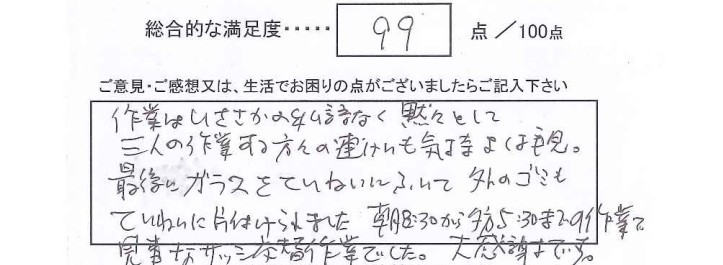 総合的な満足度・・・・・ 99 点 ／100点
ご意見・ご感想又は、生活でお困りの点がございましたらご記入下さい
作業はいささかの私語なく黙々として
三人の作業する方々の連けいも気持よく拝見。
最後にガラスをていねいにふいて 外のゴミも
ていねいに片付けられました 朝8:30から夕方5:30までの作業で
見事なサッシ交替作業でした。 大感謝です。